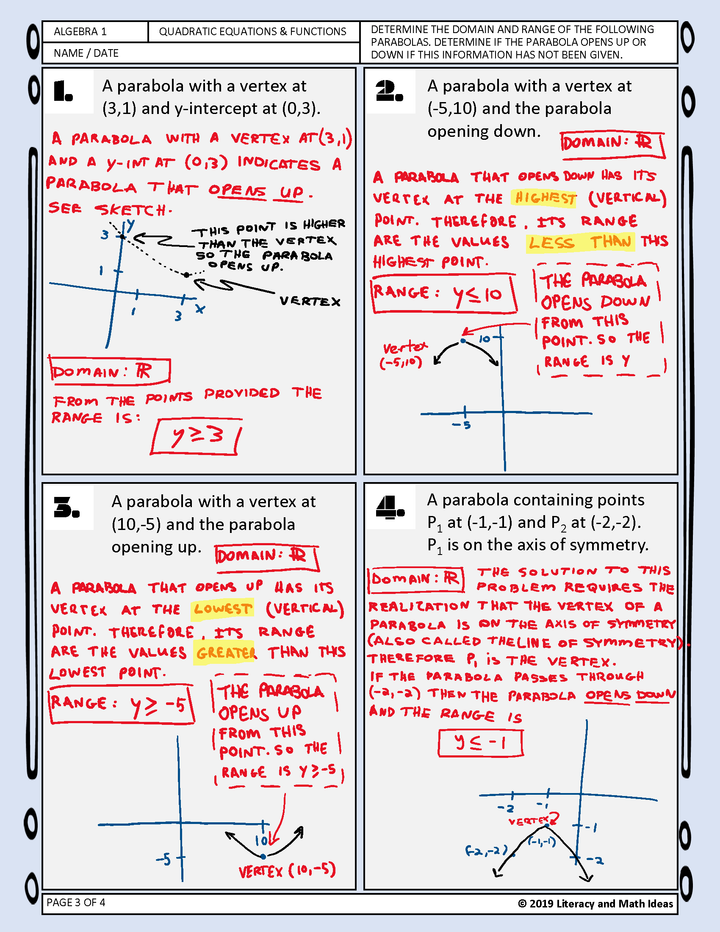 ALGEBRA 1
QUADRATIC EQUATIONS & FUNCTIONS
DETERMINE THE DOMAIN AND RANGE OF THE FOLLOWING
PARABOLAS. DETERMINE IF THE PARABOLA OPENS UP OR
DOWN IF THIS INFORMATION HAS NOT BEEN GIVEN.
NAME / DATE
1.
A parabola with a vertex at
(3,1) and y-intercept at (0,3).
A PARABOLA WITH A VERTEX AT (3,1)
AND A Y-INT AT (0,3) INDICATES A
PARABOLA THAT OPENS UP.
SEE SKETCH.
THIS POINT IS HIGHER
THAN THE VERTEX
SO THE PARABOLA
OPENS UP.
VERTEX
y
3
1
1
3
x
DOMAIN: ℝ
FROM THE POINTS PROVIDED THE
RANGE IS:
y ≥ 3
2.
A parabola with a vertex at
(-5,10) and the parabola
opening down.
DOMAIN: ℝ
A PARABOLA THAT OPENS DOWN HAS ITS
VERTEX AT THE HIGHEST (VERTICAL)
POINT. THEREFORE, ITS RANGE
ARE THE VALUES LESS THAN THIS
HIGHEST POINT.
RANGE: y ≤ 10
THE PARABOLA
OPENS DOWN
FROM THIS
POINT. SO THE
RANGE IS Y
vertex
(-5,10)
10
-5
3.
A parabola with a vertex at
(10,-5) and the parabola
opening up.
DOMAIN: ℝ
A PARABOLA THAT OPENS UP HAS ITS
VERTEX AT THE LOWEST (VERTICAL)
POINT. THEREFORE, ITS RANGE
ARE THE VALUES GREATER THAN THIS
LOWEST POINT.
RANGE: y ≥ -5
THE PARABOLA
OPENS UP
FROM THIS
POINT. SO THE
RANGE IS Y≥-5
10
-5
VERTEX (10,-5)
4.
A parabola containing points
P₁ at (-1,-1) and P₂ at (-2,-2).
P₁ is on the axis of symmetry.
DOMAIN: ℝ
THE SOLUTION TO THIS
PROBLEM REQUIRES THE
REALIZATION THAT THE VERTEX OF A
PARABOLA IS ON THE AXIS OF SYMMETRY
(ALSO CALLED THE LINE OF SYMMETRY).
THEREFORE P₁ IS THE VERTEX.
IF THE PARABOLA PASSES THROUGH
(-2,-2) THEN THE PARABOLA OPENS DOWN
AND THE RANGE IS
y ≤ -1
-2
-1
VERTEX
-1
(-2,-2)
(-1,-1)
-2
PAGE 3 OF 4
© 2019 Literacy and Math Ideas